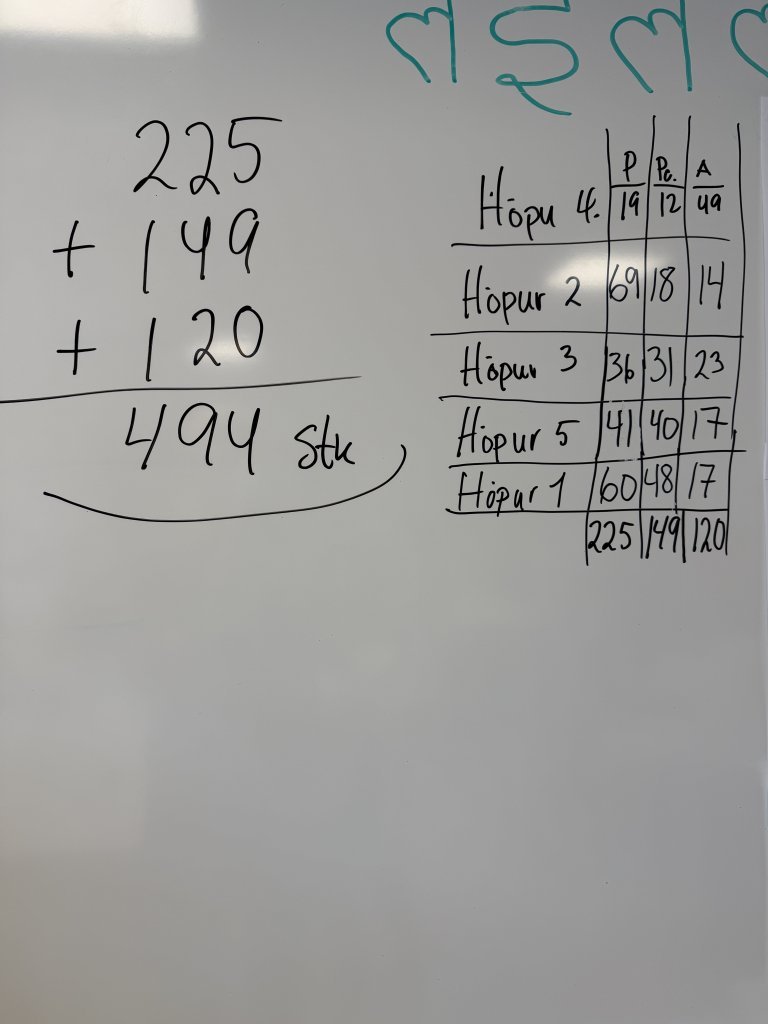 225
+ 149
+ 120
494 stk
P Pc. A
Hópu 4. 19 12 49
Hópur 2 69 18 14
Hópur 3 36 31 23
Hópur 5 41 40 17
Hópur 1 60 48 17
225 149 120